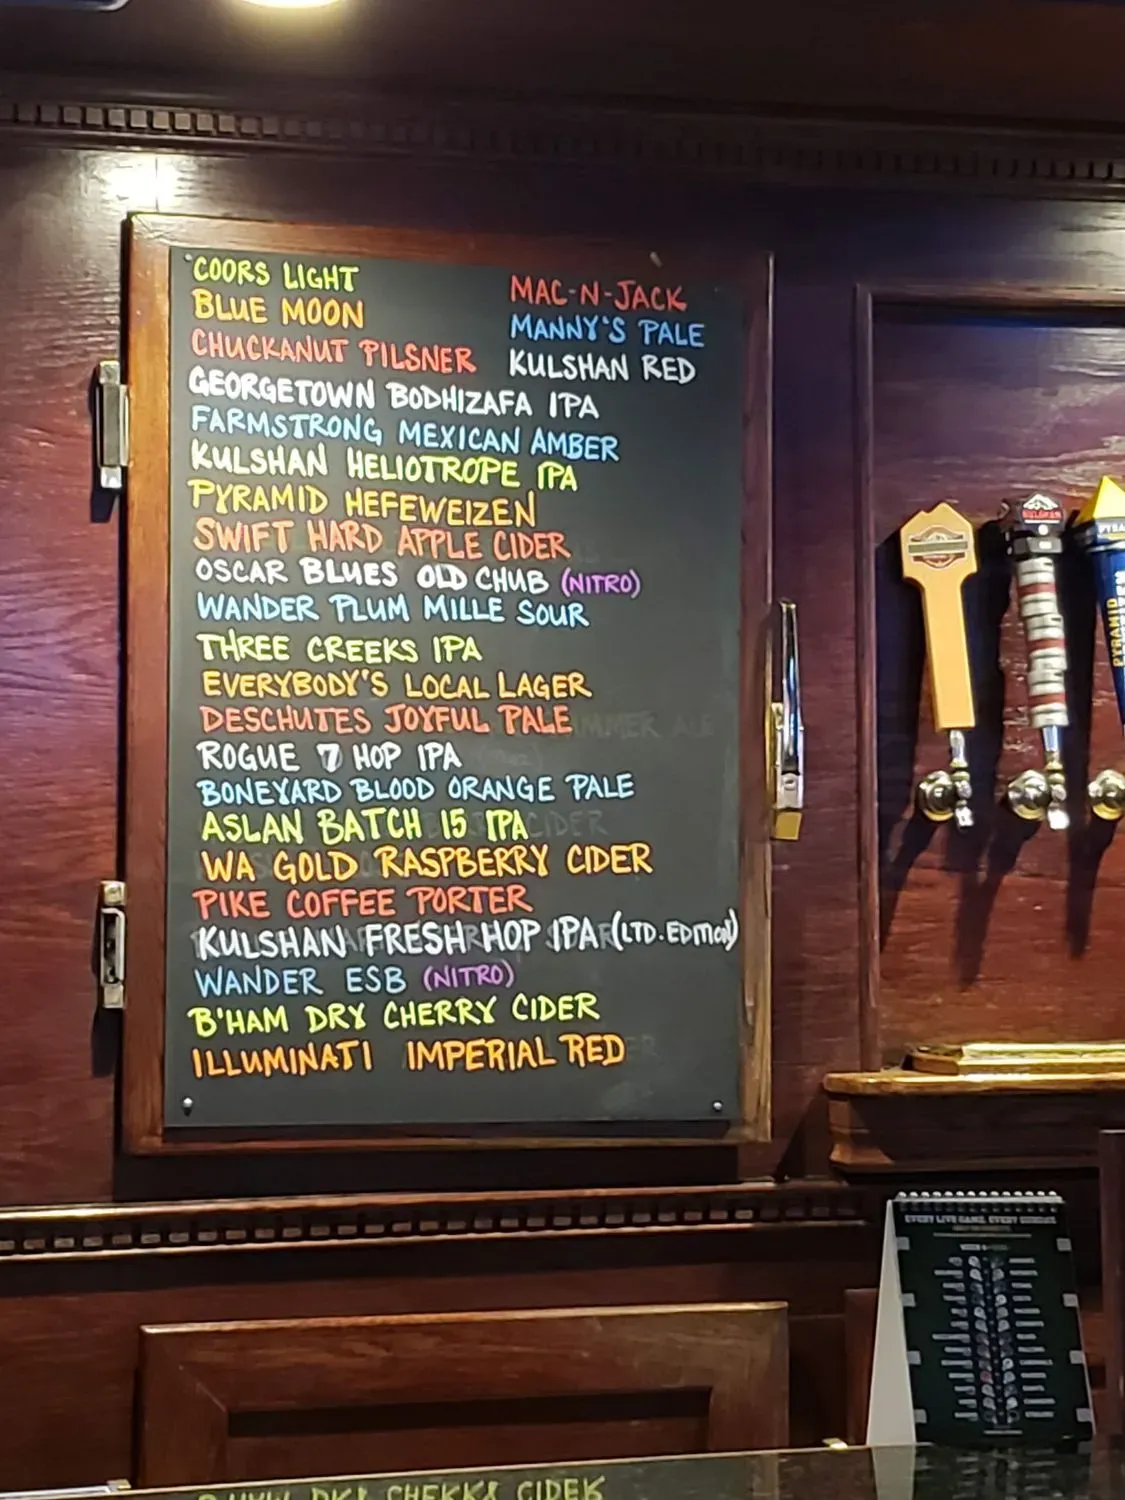 COORS LIGHT
BLUE MOON
CHUCKANUT PILSNER
MAC-N-JACK
MANNY'S PALE
KULSHAN RED
GEORGETOWN BODHIZAFA IPA
FARMSTRONG MEXICAN AMBER
KULSHAN HELIOTROPE IPA
PYRAMID HEFEWEIZEN
SWIFT HARD APPLE CIDER
OSCAR BLUES OLD CHUB (NITRO)
WANDER PLUM MILLE SOUR
THREE CREEKS IPA
EVERYBODY'S LOCAL LAGER
DESCHUTES JOYFUL PALE
ROGUE 7 HOP IPA
BONEYARD BLOOD ORANGE PALE
ASLAN BATCH 15 IPA
WA GOLD RASPBERRY CIDER
PIKE COFFEE PORTER
KULSHAN FRESH HOP IPA (LTD. EDITION)
WANDER ESB (NITRO)
B'HAM DRY CHERRY CIDER
ILLUMINATI IMPERIAL RED
PYRAMID
EVERY LIVE GAME. EVERY SUNDAY.